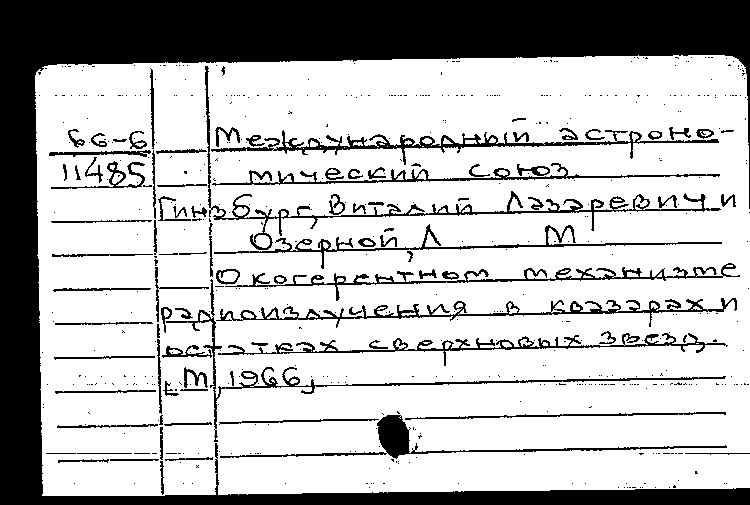 66-6 Международный астроно-
11485 мический союз.
Гинзбург, Виталий Лазаревич и
Озерной, Л М
О когерентном механизме
радиоизлучения в квазарах и
остатках сверхновых звезд.
[М, 1966]